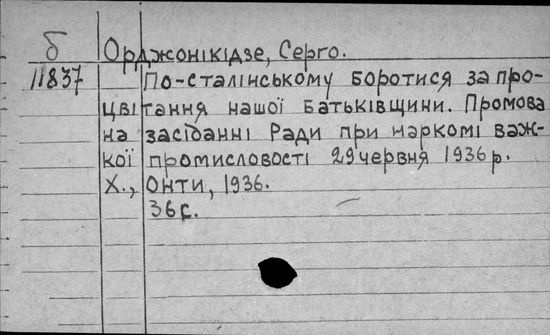 б Орджонікідзе, Серго.
11837 По-сталінському боротися за про-
цвітання нашої Батьківщини. Промова
на засіданні Ради при наркомі важ-
кої промисловості 29 червня 1936 р.
Х., ОНТИ, 1936.
36 с.